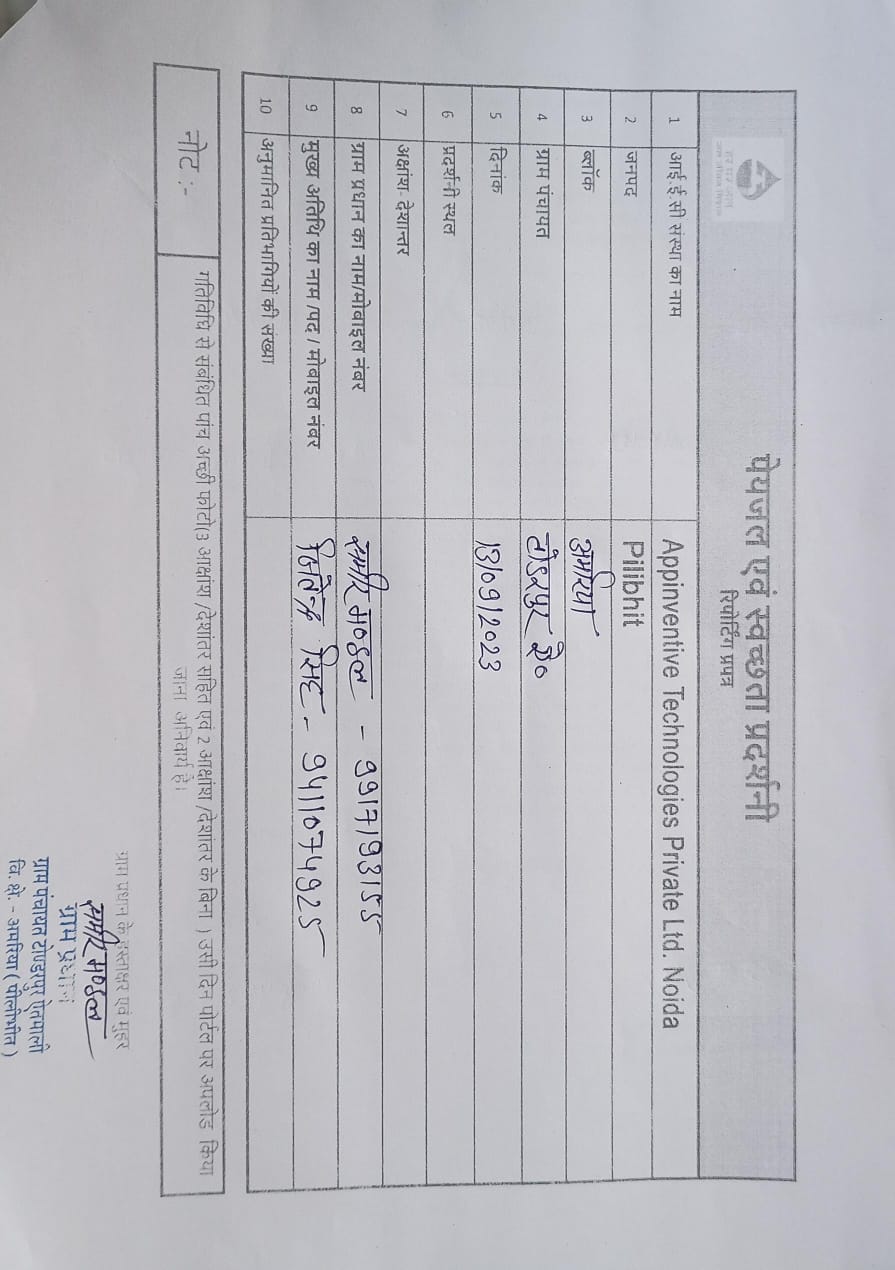 पेयजल एवं स्वच्छता प्रदर्शनी
रिपोर्टिंग प्रपत्र
1 आई.ई.सी संस्था का नाम Appinventive Technologies Private Ltd. Noida
2 जनपद Pilibhit
3 ब्लॉक अमरिया
4 ग्राम पंचायत टोंडरपुर ऐ०
5 दिनांक 13/09/2023
6 प्रदर्शनी स्थल
7 अक्षांश- देशान्तर
8 ग्राम प्रधान का नाम/मोबाइल नंबर समीर मण्डल - 9917193155
9 मुख्य अतिथि का नाम /पद / मोबाइल नंबर जितेन्द्र सिंह - 9411074925
10 अनुमानित प्रतिभागियों की संख्या
नोट :- गतिविधि से संबंधित पांच अच्छी फोटो(3 आक्षांश /देशांतर सहित एवं 2 आक्षांश /देशांतर के बिना ) उसी दिन पोर्टल पर अपलोड किया
जाना अनिवार्य है।
ग्राम प्रधान के हस्ताक्षर एवं मुहर
समीर मण्डल
ग्राम प्रधान
ग्राम पंचायत टोण्डरपुर ऐतपाली
वि.क्षे.- अमरिया ( पीलीभीत )